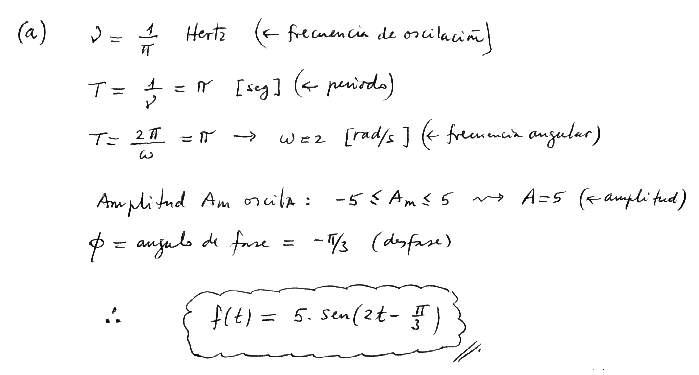 (a) ν = 1/π Hertz (← frecuencia de oscilación)
T = 1/ν = π [seg] (← periodo)
T = 2π/ω = π → ω=2 [rad/s] (← frecuencia angular)
Amplitud Am oscila : -5 ≤ Am ≤ 5 ⇝ A=5 (← amplitud)
ϕ = angulo de fase = -π/3 (desfase)
∴ f(t) = 5. sen(2t - π/3)